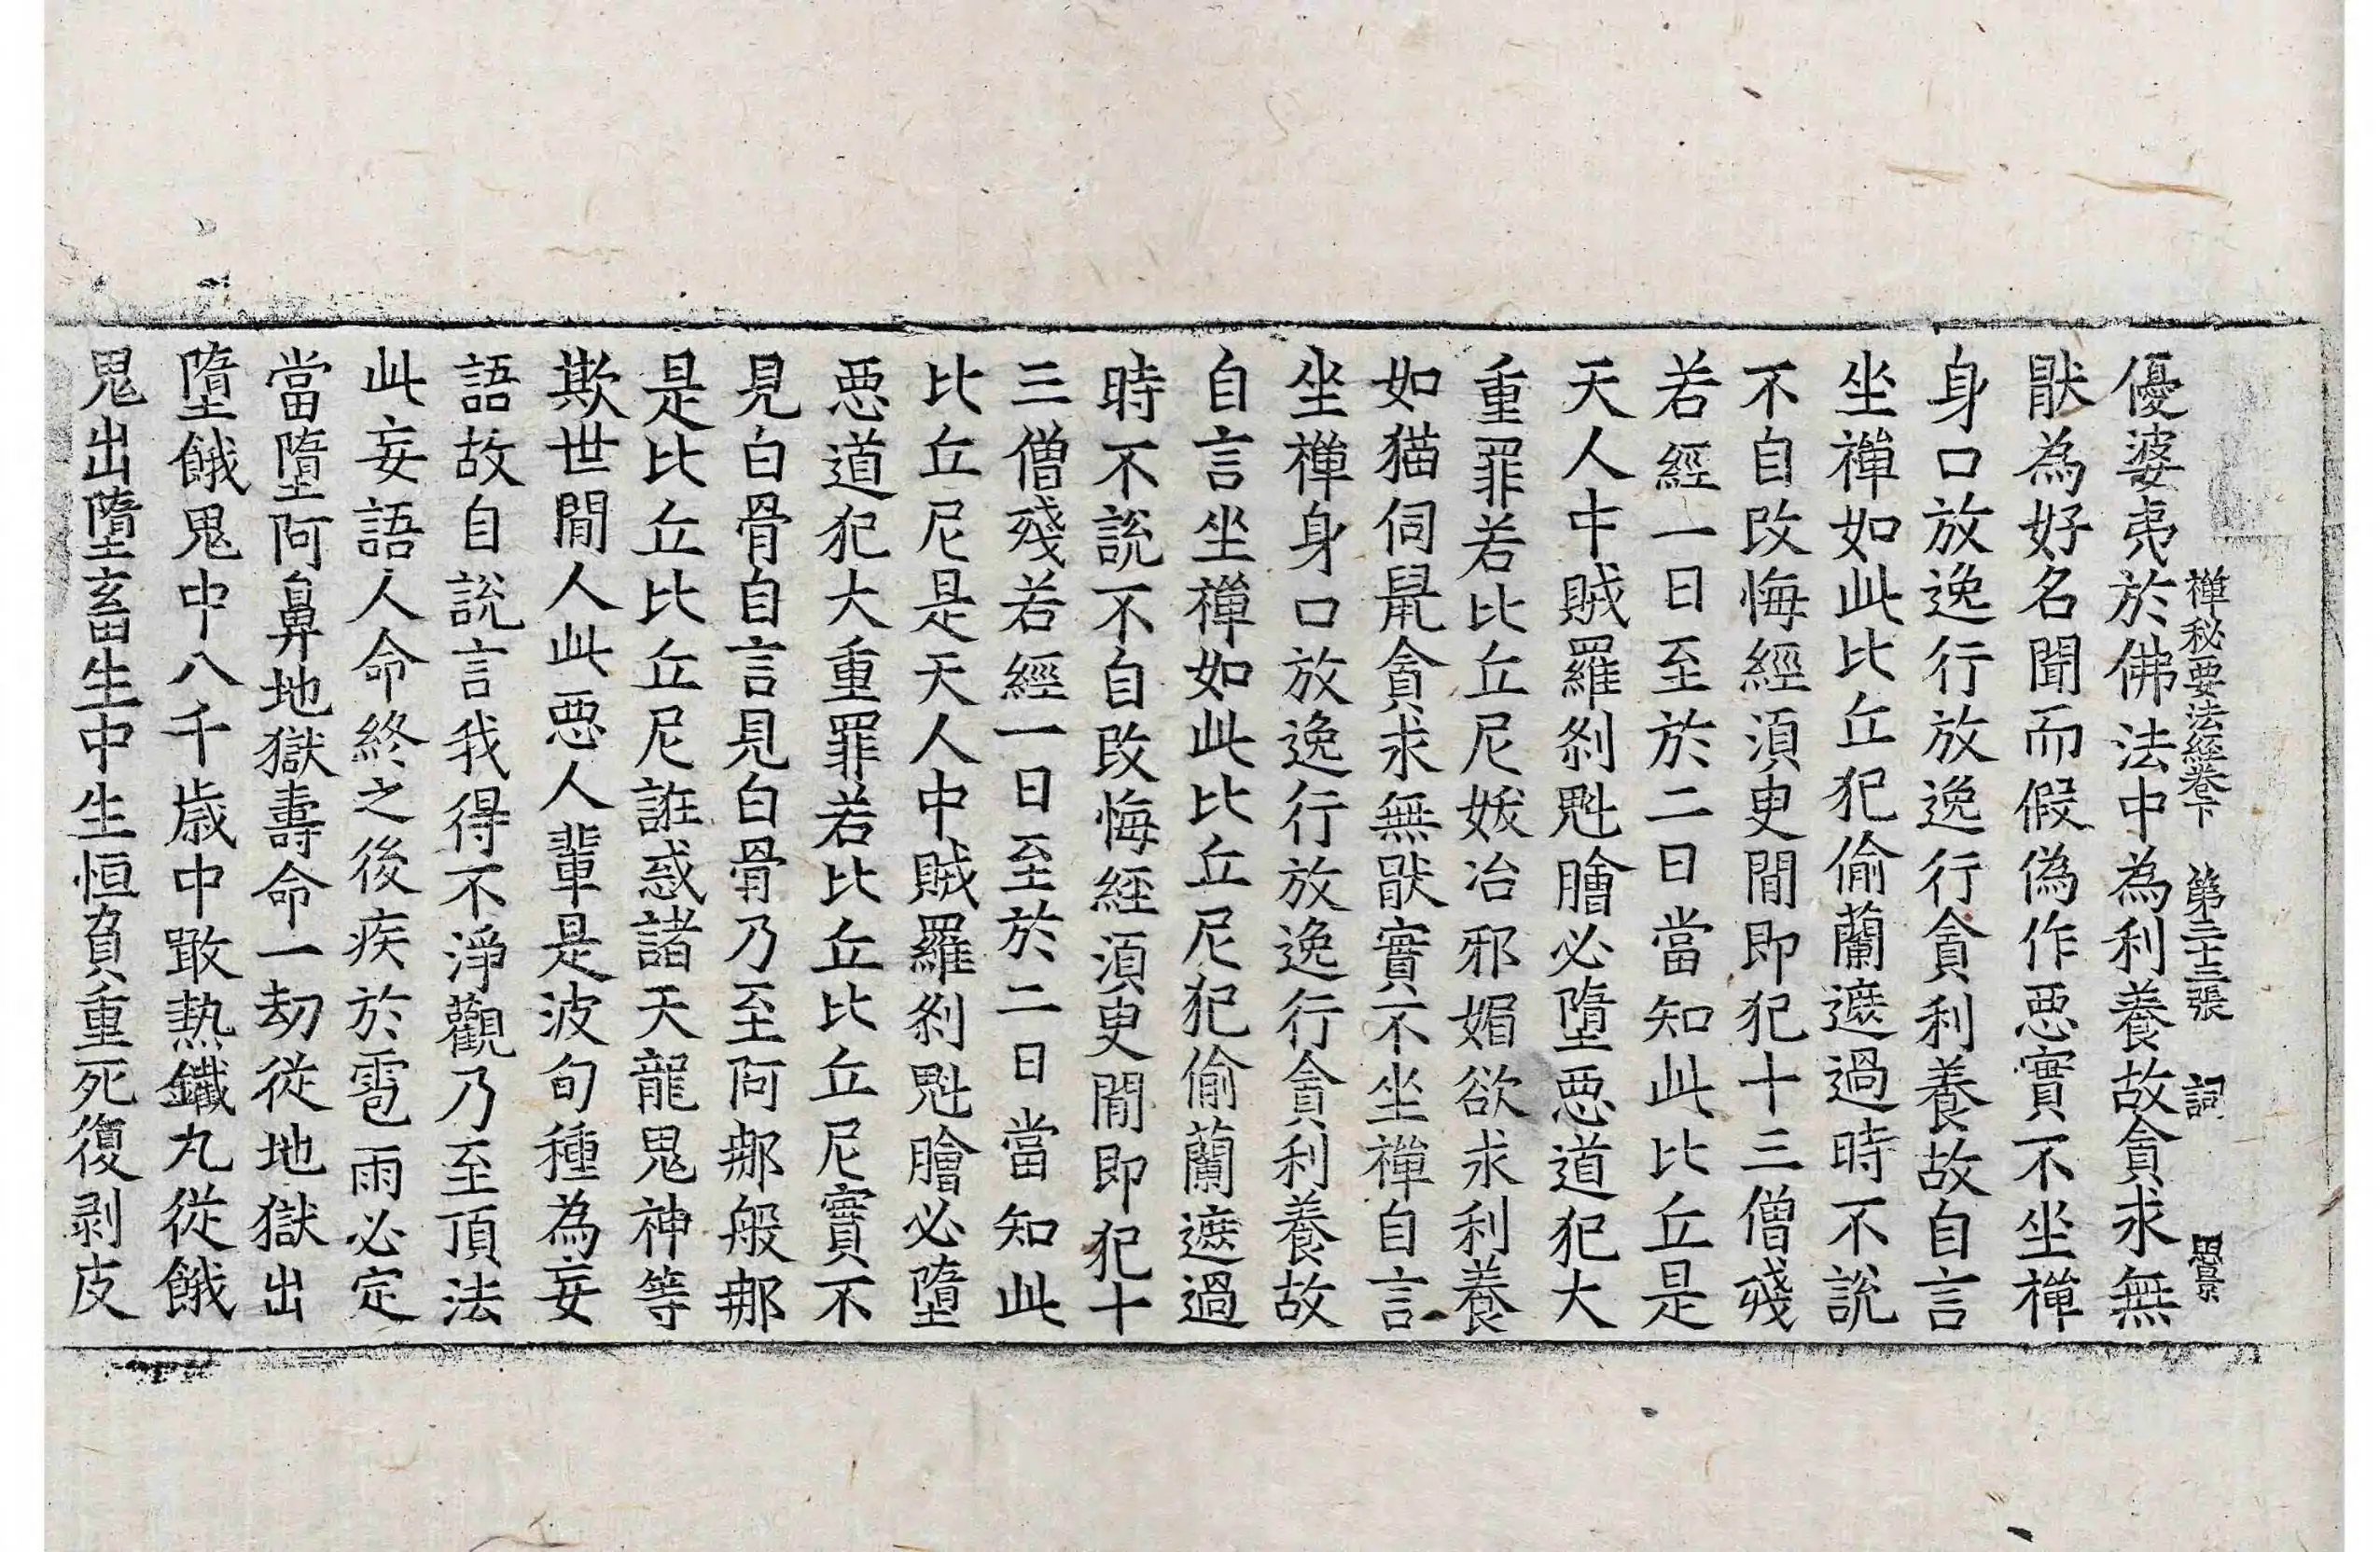 禪秘要法經卷下 第二十三張 詞
優婆夷於佛法中為利養故貪求無
猒為好名聞而假偽作惡實不坐禪
身口放逸行放逸行貪利養故自言
坐禪如此比丘犯偷蘭遮過時不說
不自改悔經須臾間即犯十三僧殘
若經一日至於二日當知此比丘是
天人中賊羅剎魁膾必墮惡道犯大
重罪若比丘尼妖冶邪媚欲求利養
如猫伺鼠貪求無猒實不坐禪自言
坐禪身口放逸行放逸行貪利養故
自言坐禪如此比丘尼犯偷蘭遮過
時不說不自改悔經須臾間即犯十
三僧殘若經一日至於二日當知此
比丘尼是天人中賊羅剎魁膾必墮
惡道犯大重罪若比丘比丘尼實不
見白骨自言見白骨乃至阿那般那
是比丘比丘尼誑惑諸天龍鬼神等
欺世間人此惡人輩是波旬種為妄
語故自說言我得不淨觀乃至頂法
此妄語人命終之後疾於雹雨必定
當墮阿鼻地獄壽命一劫從地獄出
墮餓鬼中八千歲中噉熱鐵丸從餓
鬼出墮畜生中生恒負重死復剥皮